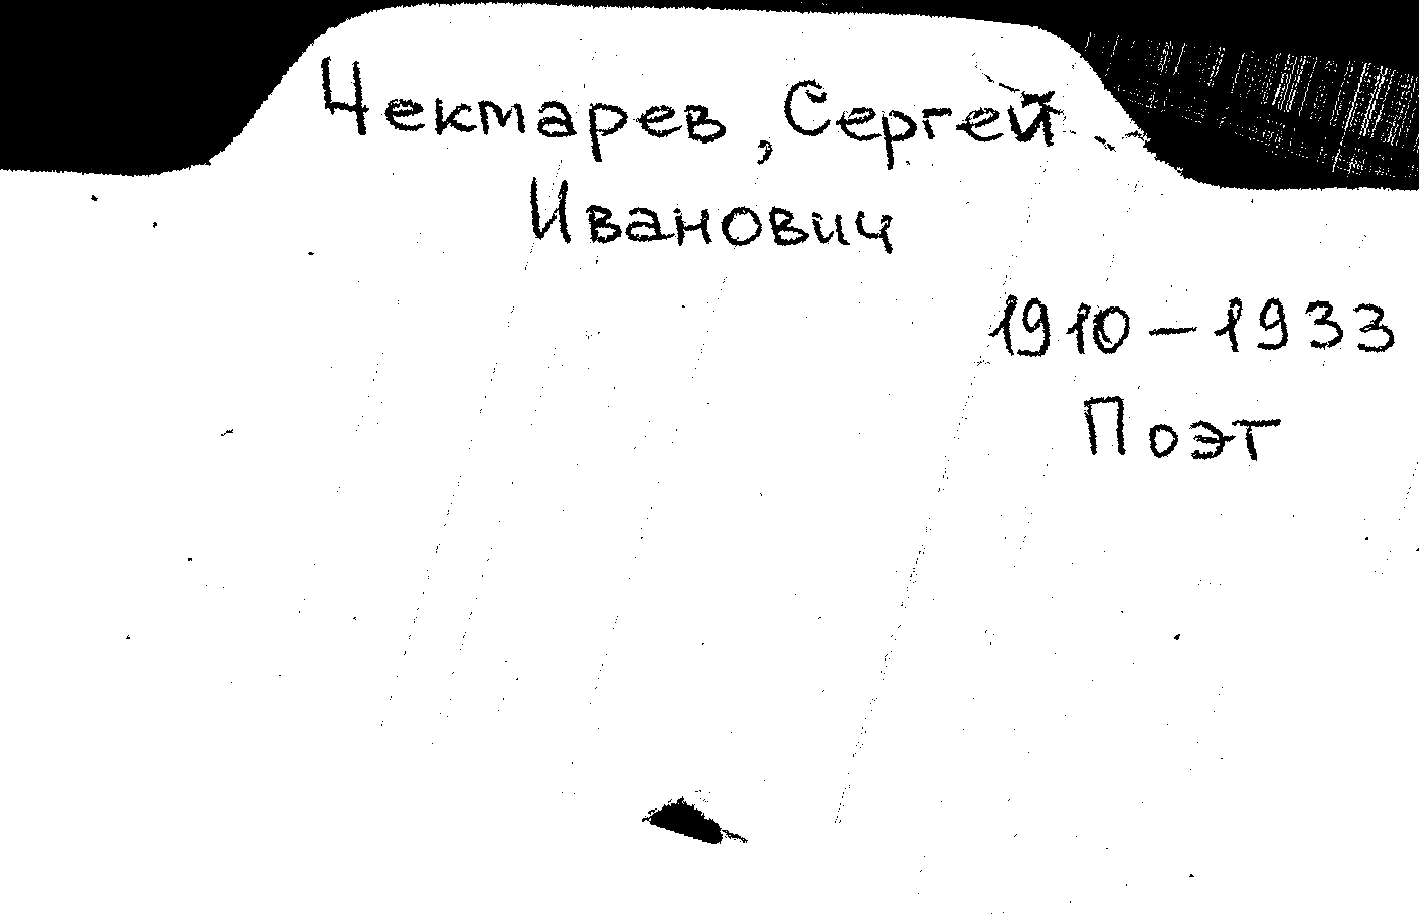 Чекмарев, Сергей
Иванович
1910-1933
Поэт